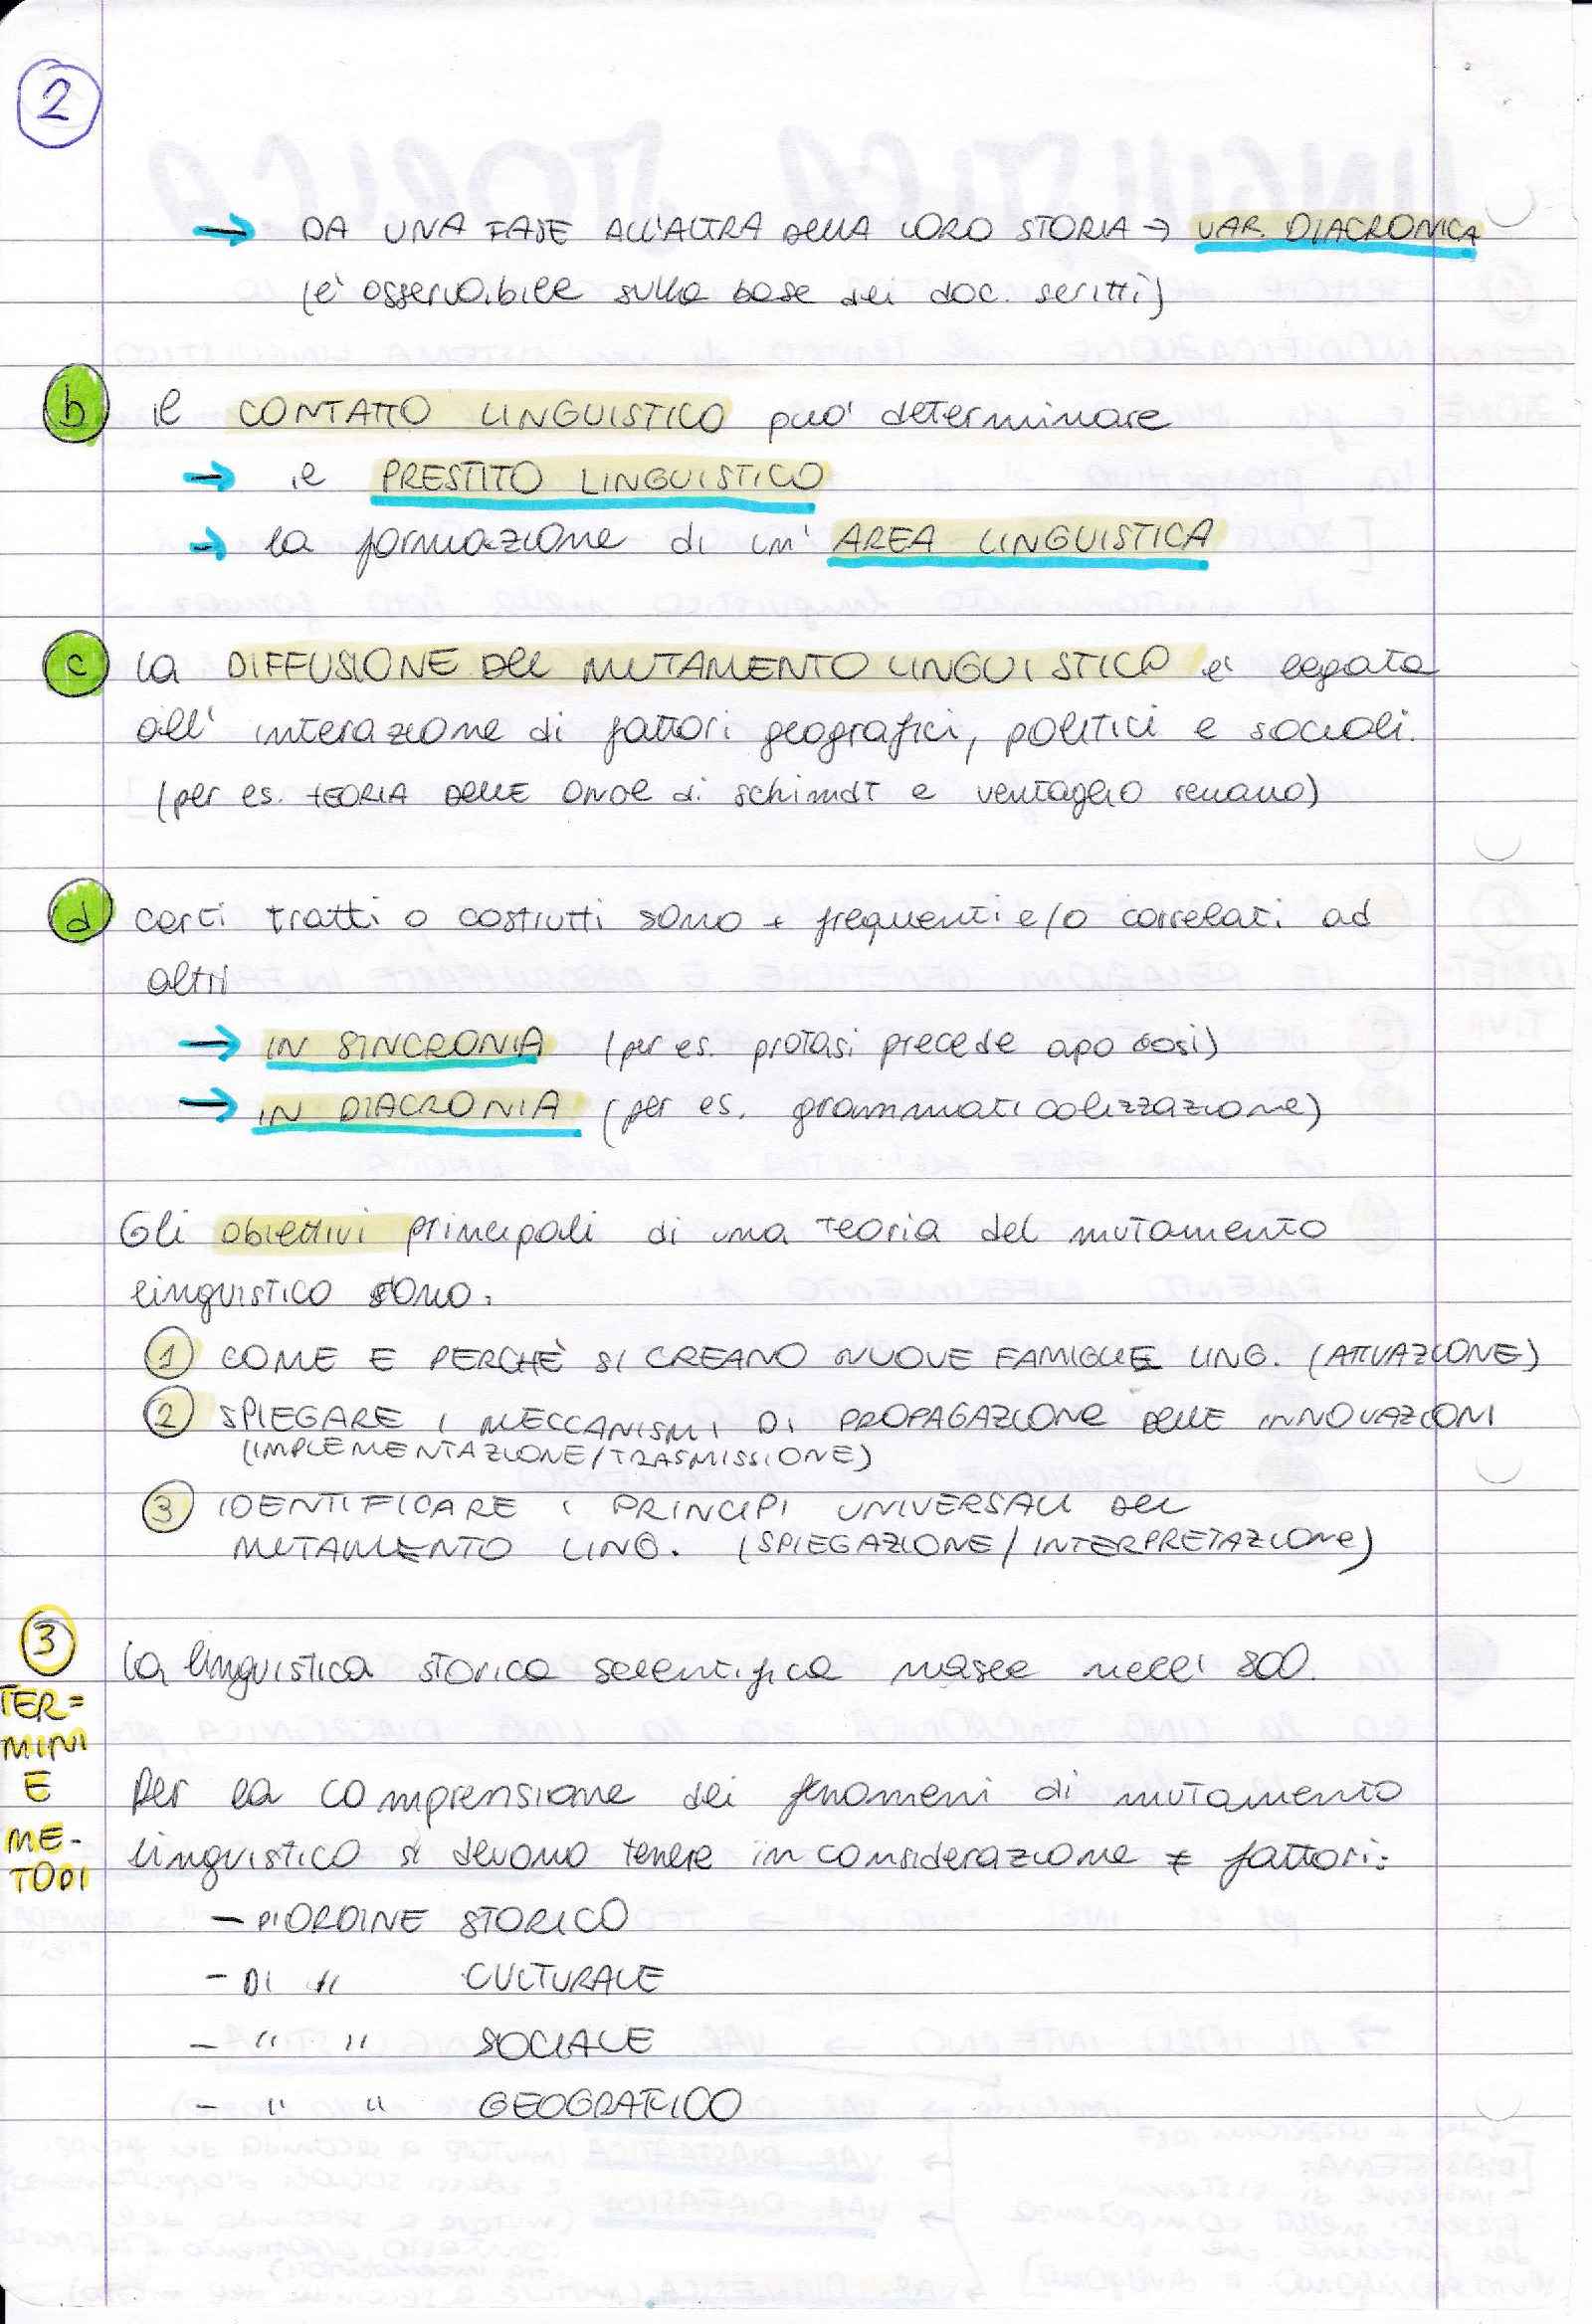 2
→ DA UNA FASE ALL'ALTRA DELLA LORO STORIA → VAR. DIACRONICA
(è osservabile sulla base dei doc. scritti)
b il CONTATTO LINGUISTICO può determinare
→ il PRESTITO LINGUISTICO
→ la formazione di un' AREA LINGUISTICA
c la DIFFUSIONE DEL MUTAMENTO LINGUISTICO è legata
all' interazione di fattori geografici, politici e sociali.
(per es. TEORIA DELLE ONDE di schimdt e ventaglio renano)
d certi tratti o costrutti sono + frequenti e/o correlati ad
altri
→ IN SINCRONIA (per es. protasi precede apodosi)
→ IN DIACRONIA (per es. grammaticalizzazione)
Gli obiettivi principali di una teoria del mutamento
linguistico sono:
1 COME E PERCHÈ SI CREANO NUOVE FAMIGLIE LING. (ATTIVAZIONE)
2 SPIEGARE I MECCANISMI DI PROPAGAZIONE DELLE INNOVAZIONI
(IMPLEMENTAZIONE/TRASMISSIONE)
3 IDENTIFICARE I PRINCIPI UNIVERSALI DEL
MUTAMENTO LING. (SPIEGAZIONE/INTERPRETAZIONE)
3 TER=
MINI
E
ME-
TODI
La linguistica storica scientifica nasce nell' 800.
Per la comprensione dei fenomeni di mutamento
linguistico si devono tenere in considerazione ≠ fattori:
- DI ORDINE STORICO
- DI " CULTURALE
- " " SOCIALE
- " " GEOGRAFICO